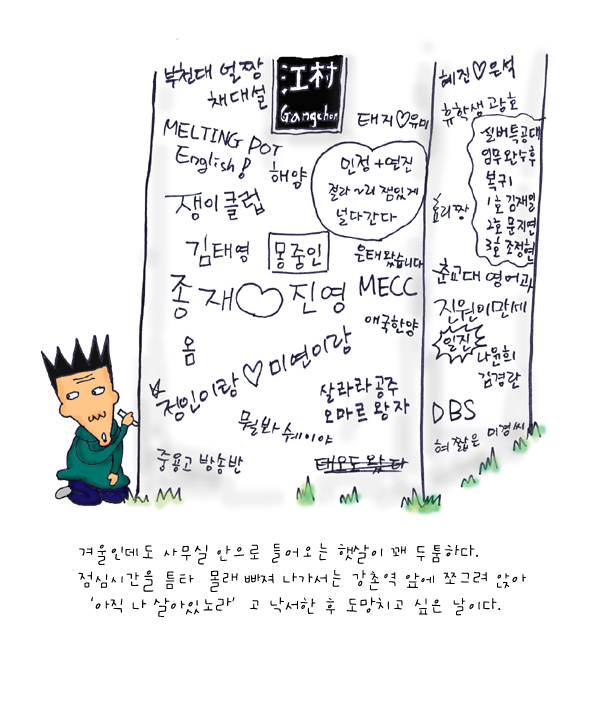 부천대 얼짱
채대설
江村
Gangchon
태지♡유미
MELTING POT
English!
해양
민정+연진
결라~리 잼있게
널다간다
쟁이클럽
김태영
몽중인
은태왔습니다
종재♡진영
MECC
애국한양
옴
정인이랑♡미연이랑
살라라공주
오마르 왕자
뭘봐 쉐이야
중용고 방송반
태오도 왔다
혜진♡은석
휴학생 광호
실버특공대
임무완수후
복귀
1호 김재밀
2호 문지연
3호 조정현
효리짱
춘교대 영어과
진원이만세
일진
나윤희
김경란
DBS
혀 짧은 미경씨
겨울인데도 사무실 안으로 들어오는 햇살이 꽤 두툼하다.
점심시간을 틈타 몰래 빠져 나가서는 강촌역 앞에 쪼그려 앉아
'아직 나 살아있노라' 고 낙서한 후 도망치고 싶은 날이다.